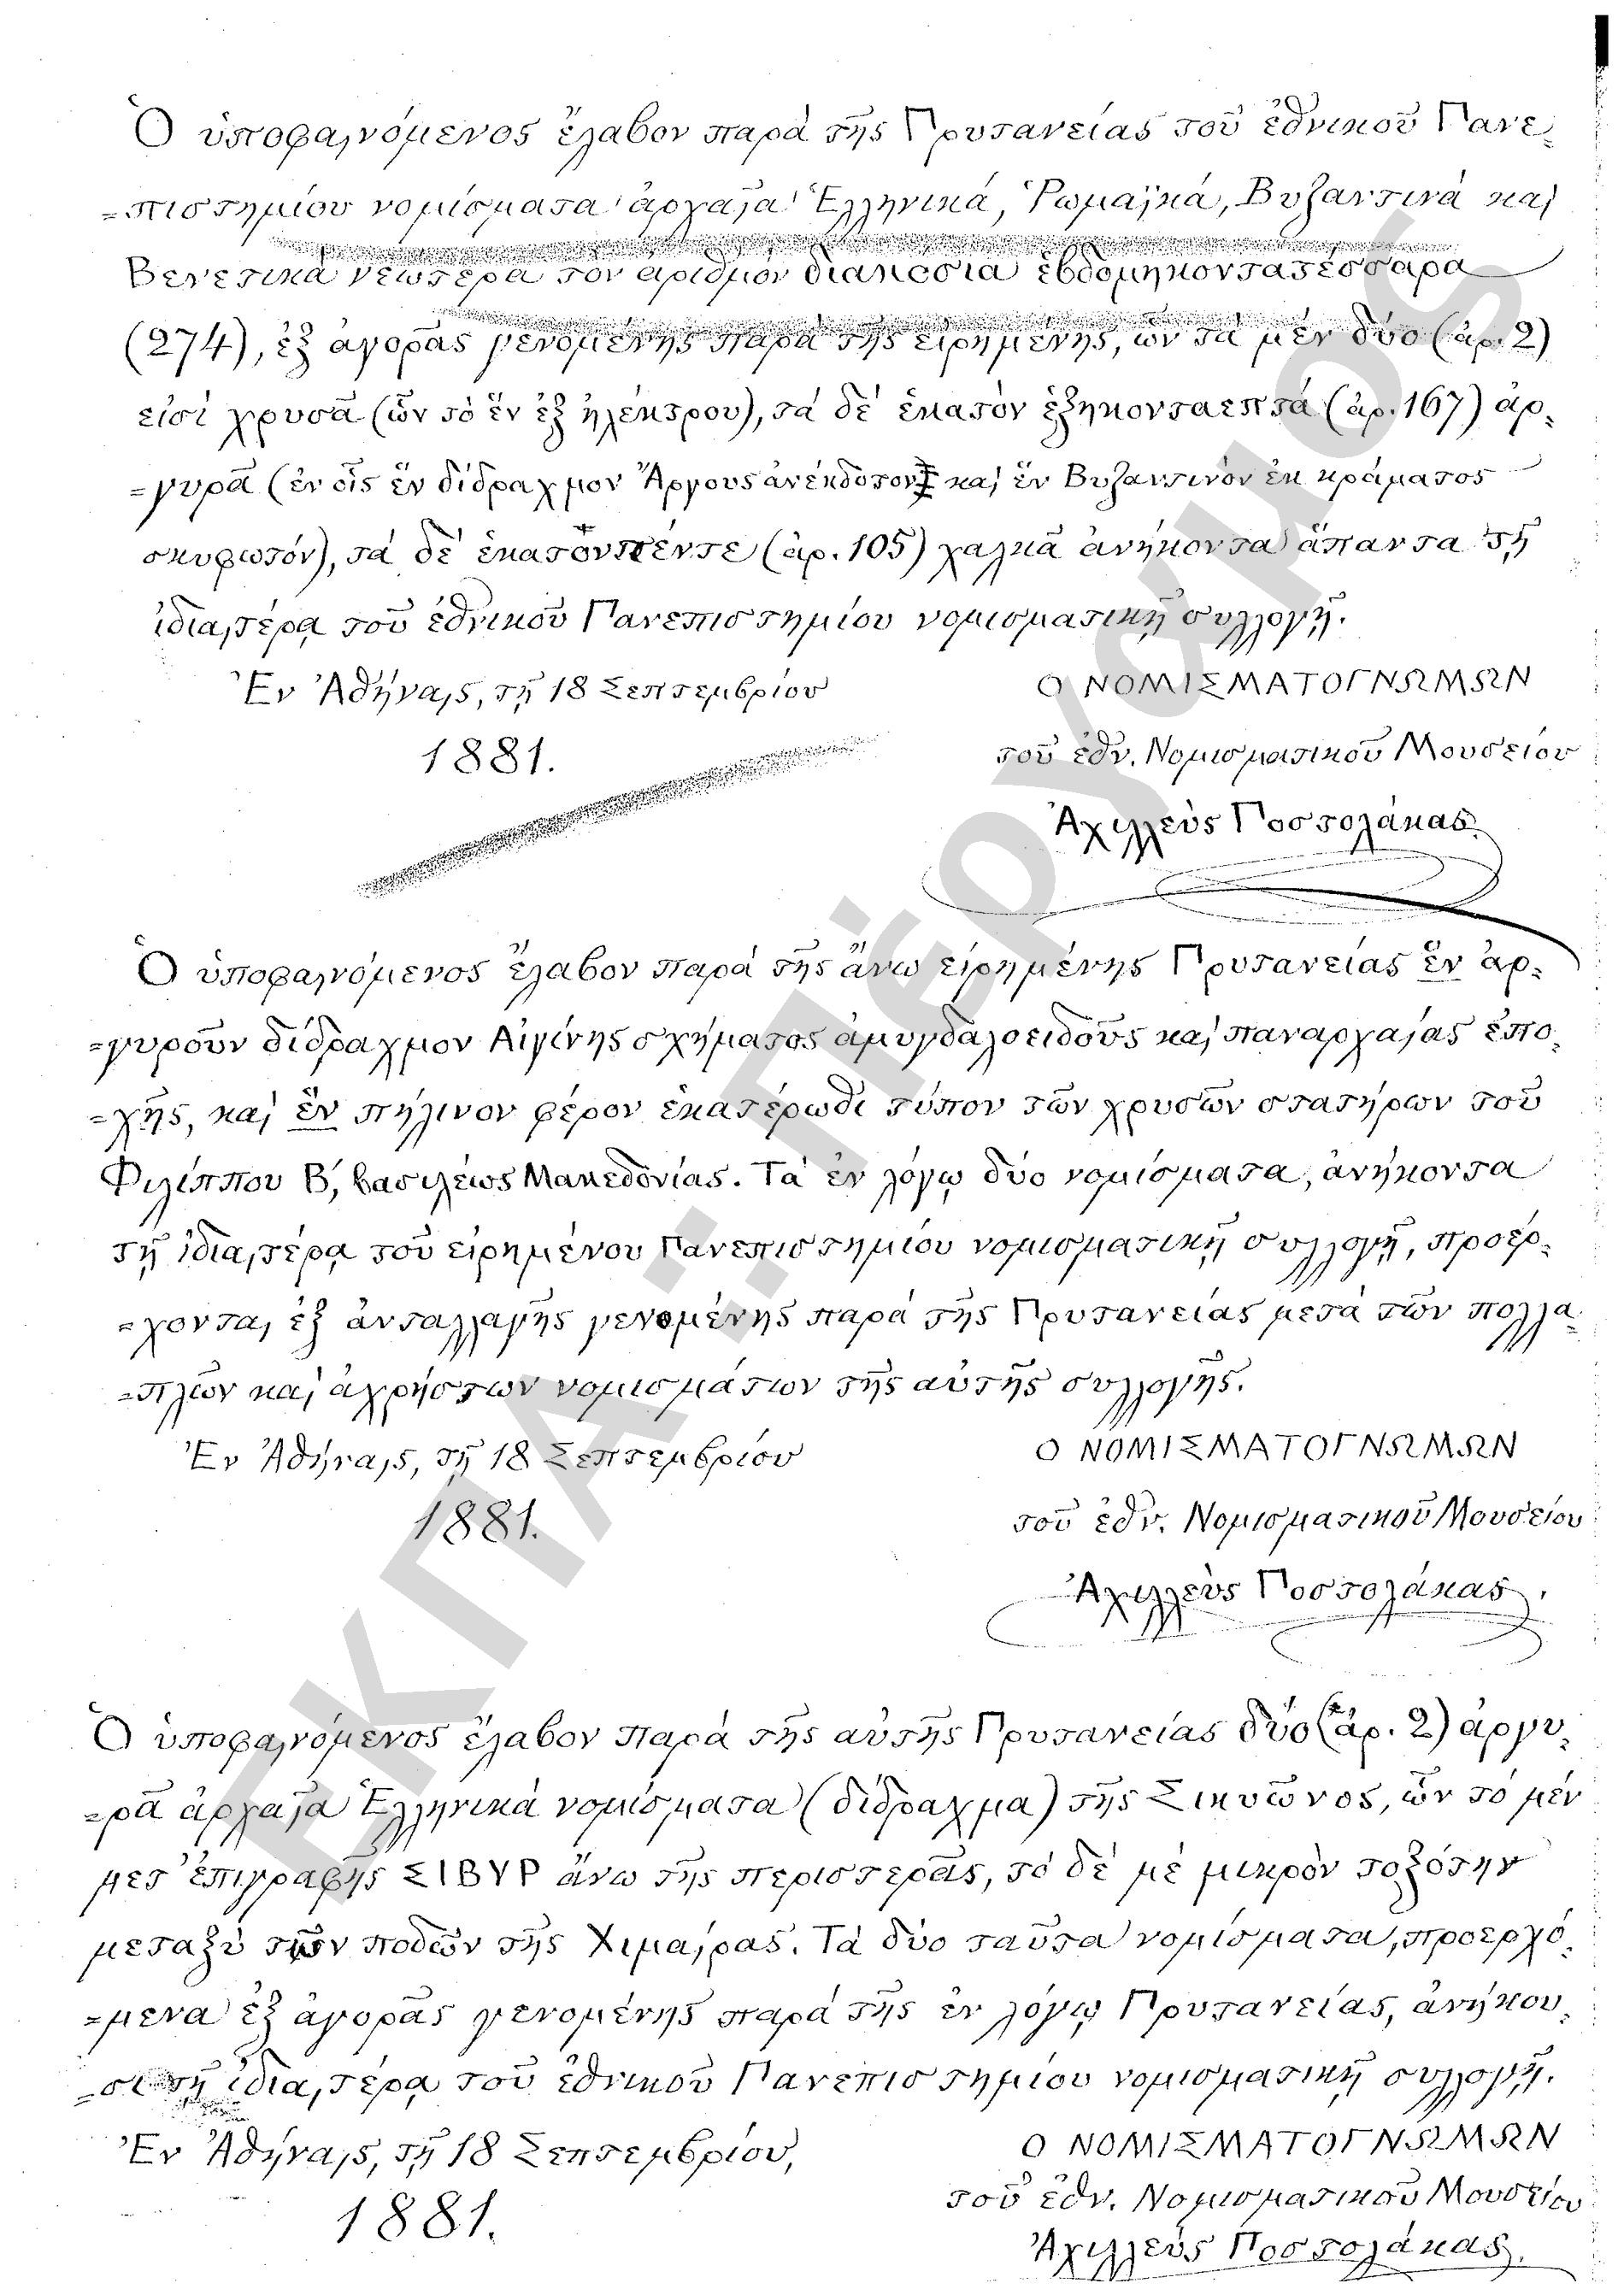 Ὁ ὑποφαινόμενος ἔλαβον παρὰ τῆς Πρυτανείας τοῦ ἐθνικοῦ Πανε=
=πιστημίου νομίσματα ἀρχαῖα Ἑλληνικά, Ῥωμαϊκά, Βυζαντινὰ καὶ
Βενετικὰ νεώτερα τὸν ἀριθμὸν διακόσια ἑβδομηκοντατέσσαρα
(274), ἐξ ἀγορᾶς γενομένης παρὰ τῆς εἰρημένης, ὧν τὰ μὲν δύο (ἀρ. 2)
εἰσὶ χρυσᾶ (ὧν τὸ ἓν ἐξ ἠλέκτρου), τὰ δὲ ἑκατὸν ἑξηκονταεπτά (ἀρ. 167) ἀρ=
=γυρᾶ (ἐν οἷς ἓν δίδραχμον Ἄργους ἀνέκδοτον καὶ ἓν Βυζαντινὸν ἐκ κράματος
σκυφωτόν), τὰ δὲ ἑκατὸν πέντε (ἀρ. 105) χαλκᾶ ἀνήκοντα ἅπαντα τῇ
ἰδιαιτέρᾳ τοῦ ἐθνικοῦ Πανεπιστημίου νομισματικῇ συλλογῇ.
Ἐν Ἀθήναις, τῇ 18 Σεπτεμβρίου
1881.
Ο ΝΟΜΙΣΜΑΤΟΓΝΩΜΩΝ
τοῦ ἐθν. Νομισματικοῦ Μουσείου
Ἀχιλλεὺς Ποστολάκας
Ὁ ὑποφαινόμενος ἔλαβον παρὰ τῆς ἄνω εἰρημένης Πρυτανείας ἓν ἀρ=
=γυροῦν δίδραχμον Αἰγίνης σχήματος ἀμυγδαλοειδοῦς καὶ παναρχαίας ἐπο=
=χῆς, καὶ ἓν πήλινον φέρον ἑκατέρωθι τύπον τῶν χρυσῶν στατήρων τοῦ
Φιλίππου Β, βασιλέως Μακεδονίας. Τὰ ἐν λόγῳ δύο νομίσματα, ἀνήκοντα
τῇ ἰδιαιτέρᾳ τοῦ εἰρημένου Πανεπιστημίου νομισματικῇ συλλογῇ, προέρ=
=χονται ἐξ ἀνταλλαγῆς γενομένης παρὰ τῆς Πρυτανείας μετὰ τῶν πολλα=
=πλῶν καὶ ἀχρήστων νομισμάτων τῆς αὐτῆς συλλογῆς.
Ἐν Ἀθήναις, τῇ 18 Σεπτεμβρίου
1881.
Ο ΝΟΜΙΣΜΑΤΟΓΝΩΜΩΝ
τοῦ ἐθν. Νομισματικοῦ Μουσείου
Ἀχιλλεὺς Ποστολάκας.
Ὁ ὑποφαινόμενος ἔλαβον παρὰ τῆς αὐτῆς Πρυτανείας δύο (ἀρ. 2) ἀργυ=
=ρᾶ ἀρχαῖα Ἑλληνικὰ νομίσματα (δίδραχμα) τῆς Σικυῶνος, ὧν τὸ μὲν
μετ' ἐπιγραφῆς ΣΙΒΥΡ ἄνω τῆς περιστερᾶς, τὸ δὲ μὲ μικρὸν τοξότην
μεταξὺ τῶν ποδῶν τῆς Χιμαίρας. Τὰ δύο ταῦτα νομίσματα, προερχό=
=μενα ἐξ ἀγορᾶς γενομένης παρὰ τῆς ἐν λόγῳ Πρυτανείας, ἀνήκου=
=σι τῇ ἰδιαιτέρᾳ τοῦ ἐθνικοῦ Πανεπιστημίου νομισματικῇ συλλογῇ.
Ἐν Ἀθήναις, τῇ 18 Σεπτεμβρίου,
1881.
Ο ΝΟΜΙΣΜΑΤΟΓΝΩΜΩΝ
τοῦ ἐθν. Νομισματικοῦ Μουσείου
Ἀχιλλεὺς Ποστολάκας.
ΕΚΠΑ:: Πέργαμος